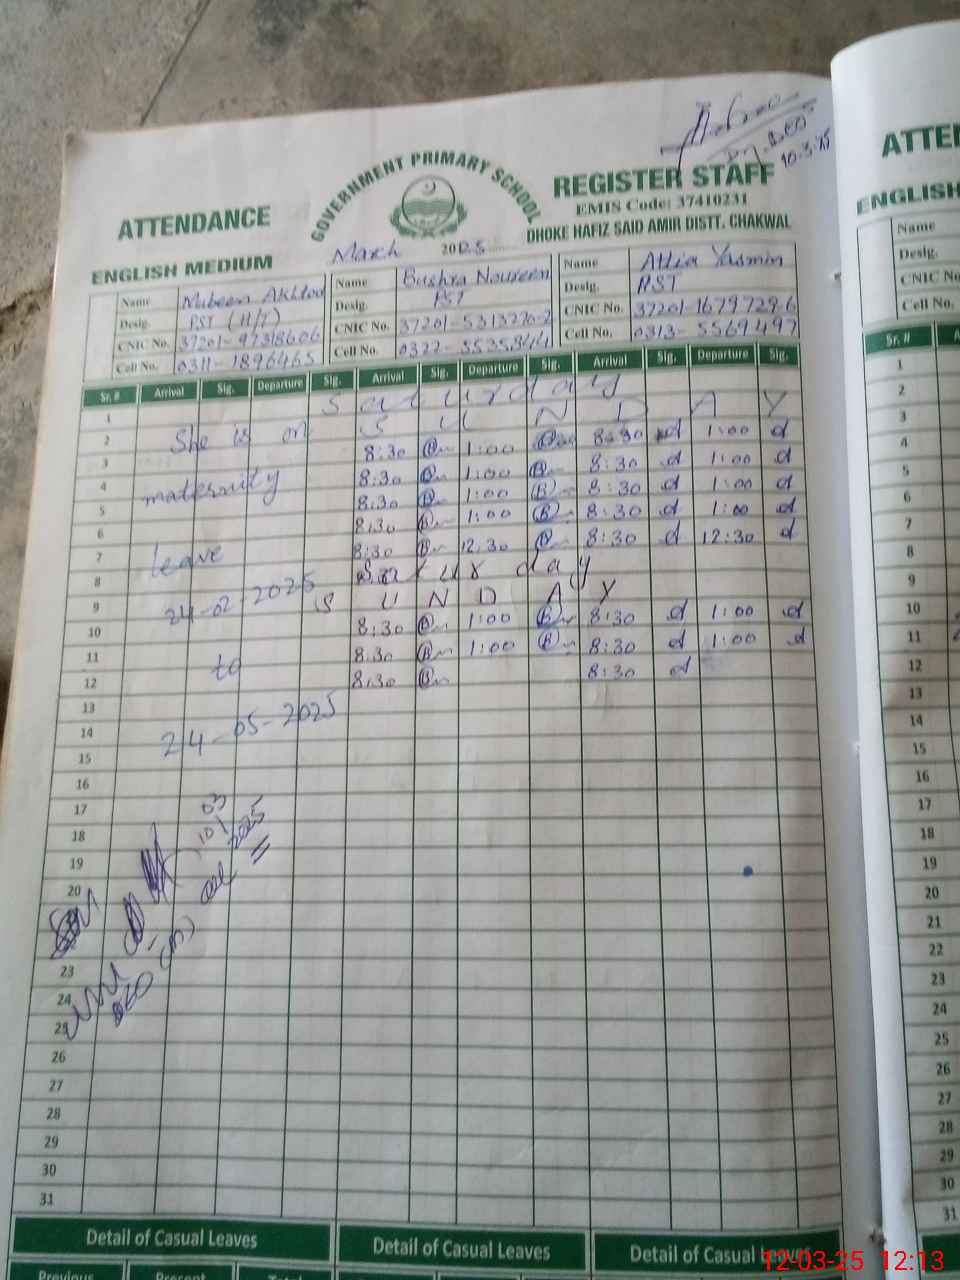 10.3.25
GOVERNMENT PRIMARY SCHOOL
ATTENDANCE
REGISTER STAFF
EMIS Code: 37410231
DHOKE HAFIZ SAID AMIR DISTT. CHAKWAL
ENGLISH MEDIUM
March 2025
Name Mubeen Akhtar Name Bushra Noureen Name Attia Yasmin
Desig. PST (H/T) Desig. PST Desig. PST
CNIC No. 37201-97318606 CNIC No. 37201-5313270-2 CNIC No. 37201-1679729-6
Cell No. 0311-1896465 Cell No. 0322-5535844 Cell No. 0313-5569497
Sr. # Arrival Sig. Departure Sig. Arrival Sig. Departure Sig. Arrival Sig. Departure Sig.
1 Saturday
2 She is on SUNDAY
3 8:30 1:00 8:30 d 1:00 d
4 maternity 8:30 1:00 8:30 d 1:00 d
5 8:30 1:00 8:30 d 1:00 d
6 8:30 1:00 8:30 d 1:00 d
7 leave 8:30 12:30 8:30 d 12:30 d
8 Saturday
9 24-02-2025 SUNDAY
10 8:30 1:00 8:30 d 1:00 d
11 to 8:30 1:00 8:30 d 1:00 d
12 8:30 8:30 d
13
14 24-05-2025
15
16
17 03
18 10 2025
19
20
23
24
25
26
27
28
29
30
31
Detail of Casual Leaves Detail of Casual Leaves Detail of Casual Leaves
Previous Present Total
ATTE
ENGLISH
Name
Desig.
CNIC No
Cell No.
Sr. # A
1
2
3
4
5
6
7
8
9
10
11
12
13
14
15
16
17
18
19
20
21
22
23
24
25
26
27
28
29
30
31
12-03-25 12:13